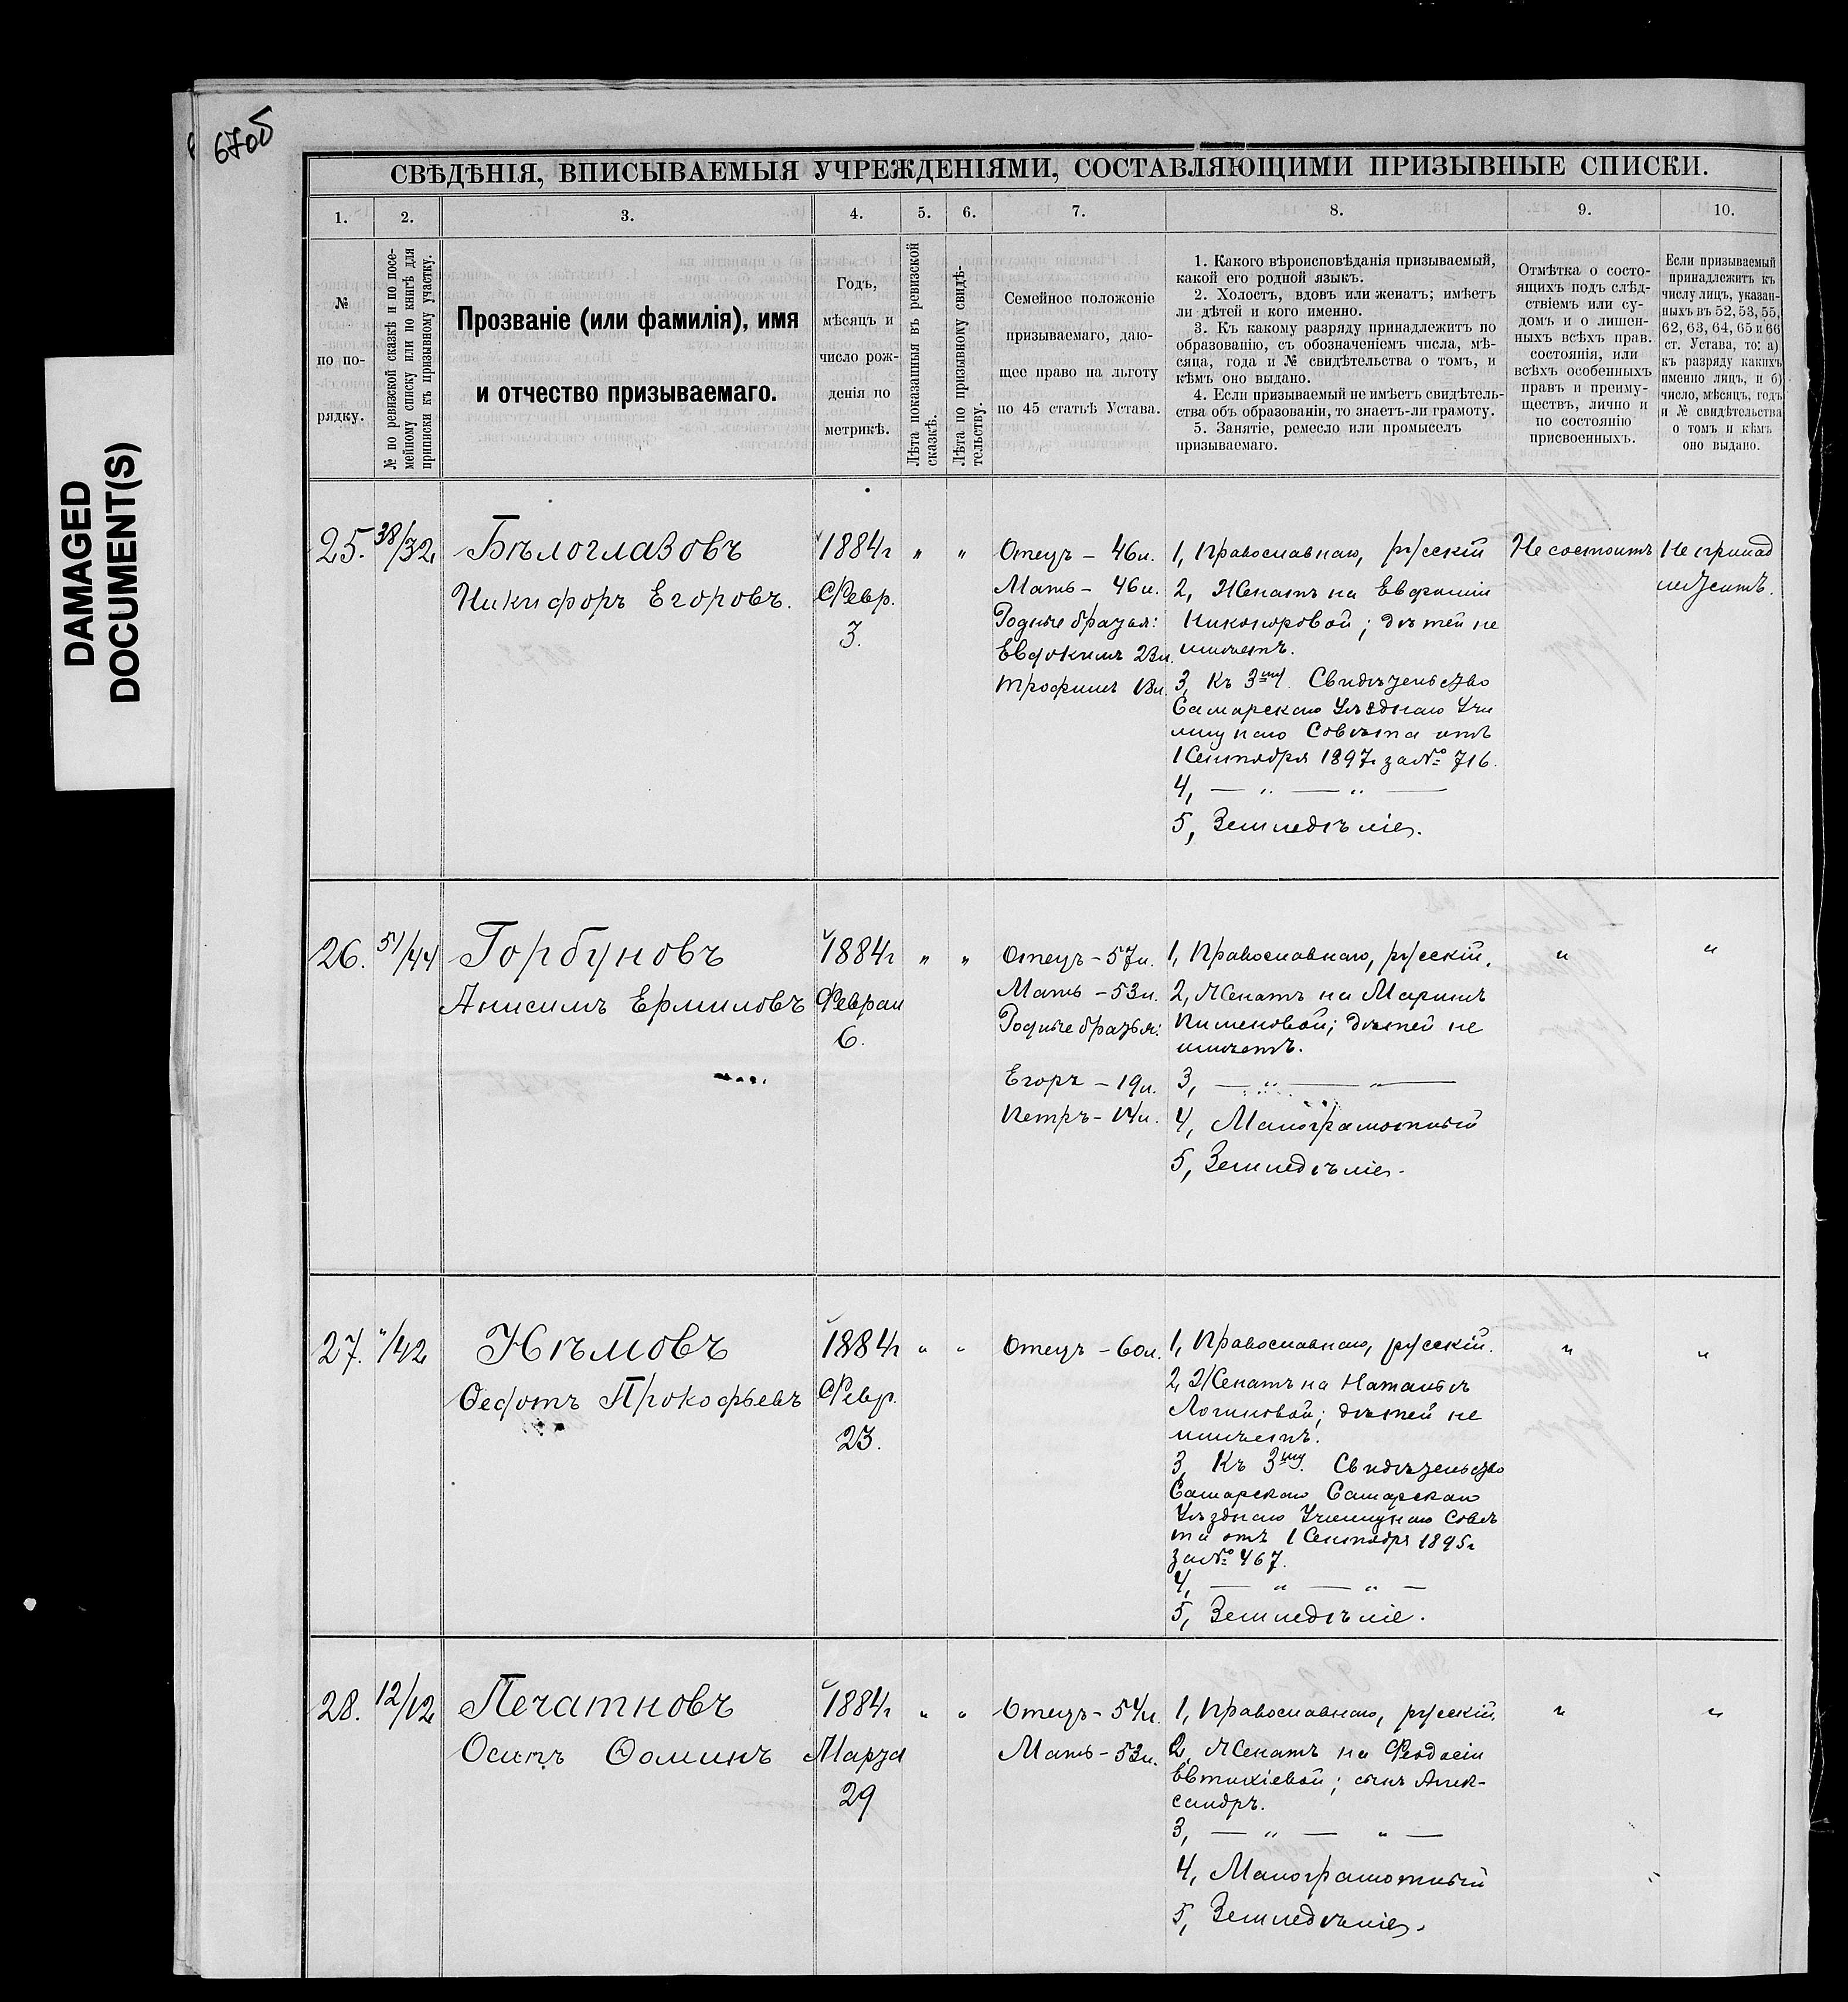 670б
DAMAGED
DOCUMENT(S)
СВѢДѢНІЯ, ВПИСЫВАЕМЫЯ УЧРЕЖДЕНІЯМИ, СОСТАВЛЯЮЩИМИ ПРИЗЫВНЫЕ СПИСКИ.
1. 2. 3. 4. 5. 6. 7. 8. 9. 10.
№
по по-
рядку.
№ по ревизской сказкѣ и по посе-
мейному списку или по книгѣ для
приписки къ призывному участку.
Прозваніе (или фамилія), имя
и отчество призываемаго.
Годъ,
мѣсяцъ и
число рож-
денія по
метрикѣ.
Лѣта показанныя въ ревизской
сказкѣ.
Лѣта по призывному свидѣ-
тельству.
Семейное положеніе
призываемаго, даю-
щее право на льготу
по 45 статьѣ Устава.
1. Какого вѣроисповѣданія призываемый,
какой его родной языкъ.
2. Холостъ, вдовъ или женатъ; имѣетъ
ли дѣтей и кого именно.
3. Къ какому разряду принадлежитъ по
образованію, съ обозначеніемъ числа, мѣ-
сяца, года и № свидѣтельства о томъ, и
кѣмъ оно выдано.
4. Если призываемый не имѣетъ свидѣтель-
ства объ образованіи, то знаетъ-ли грамоту.
5. Занятіе, ремесло или промыселъ
призываемаго.
Отмѣтка о состо-
ящихъ подъ слѣд-
ствіемъ или су-
домъ и о лишен-
ныхъ всѣхъ прав.
состоянія, или
всѣхъ особенныхъ
правъ и преиму-
ществъ, лично и
по состоянію
присвоенныхъ.
Если призываемый
принадлежитъ къ
числу лицъ, указан-
ныхъ въ 52, 53, 55,
62, 63, 64, 65 и 66
ст. Устава, то: а)
къ разряду какихъ
именно лицъ, и б)
число, мѣсяцъ, годъ
и № свидѣтельства
о томъ и кѣмъ
оно выдано.
25. 38/32
Бѣлоглазовъ
Никифоръ Егоровъ.
1884г
Февр.
3.
" "
Отецъ – 46л.
Мать – 46л.
Родные братья:
Евдокимъ 23л.
Трофимъ 13л.
1, Православнаго, русскій
2, Женатъ на Евфиміи
Никоноровой; дѣтей не
имѣетъ.
3, Къ 3му. Свидѣтельство
Самарскаго Уѣзднаго Учи
лищнаго Совѣта отъ
1 Сентября 1897г за № 716.
4, — " — " —
5, Земледѣліе.
Не состоитъ
Не принад
лежитъ.
26. 51/44
Горбуновъ
Анисимъ Ермиловъ
1884г
Феврал
6.
" "
Отецъ – 57л.
Мать – 53л.
Родные братья:
Егоръ – 19л.
Петръ – 14л.
1, Православнаго, русскій.
2, Женатъ на Маринѣ
Пименовой; дѣтей не
имѣетъ.
3, — " — " —
4, Малограмотный
5, Земледѣліе.
" "
27. "/42
Нѣмовъ
Ѳедотъ Прокофьевъ
1884г
Февр.
23.
" "
Отецъ – 60л.
1, Православнаго, русскій.
2, Женатъ на Натальѣ
Логиновой; дѣтей не
имѣетъ.
3, Къ 3му. Свидѣтельство
Самарскаго Самарскаго
Уѣзднаго Училищнаго Совѣ
та отъ 1 Сентября 1895г
за № 467.
4, — " — " —
5, Земледѣліе.
" "
28. 12/12
Печатновъ
Осипъ Ѳоминъ
1884г
Марта
29
" "
Отецъ – 54л.
Мать – 53л.
1, Православнаго, русскій.
2, Женатъ на Феодосіи
Евтихіевой; сынъ Алек-
сандръ.
3, — " — " —
4, Малограмотный
5, Земледѣліе.
" "